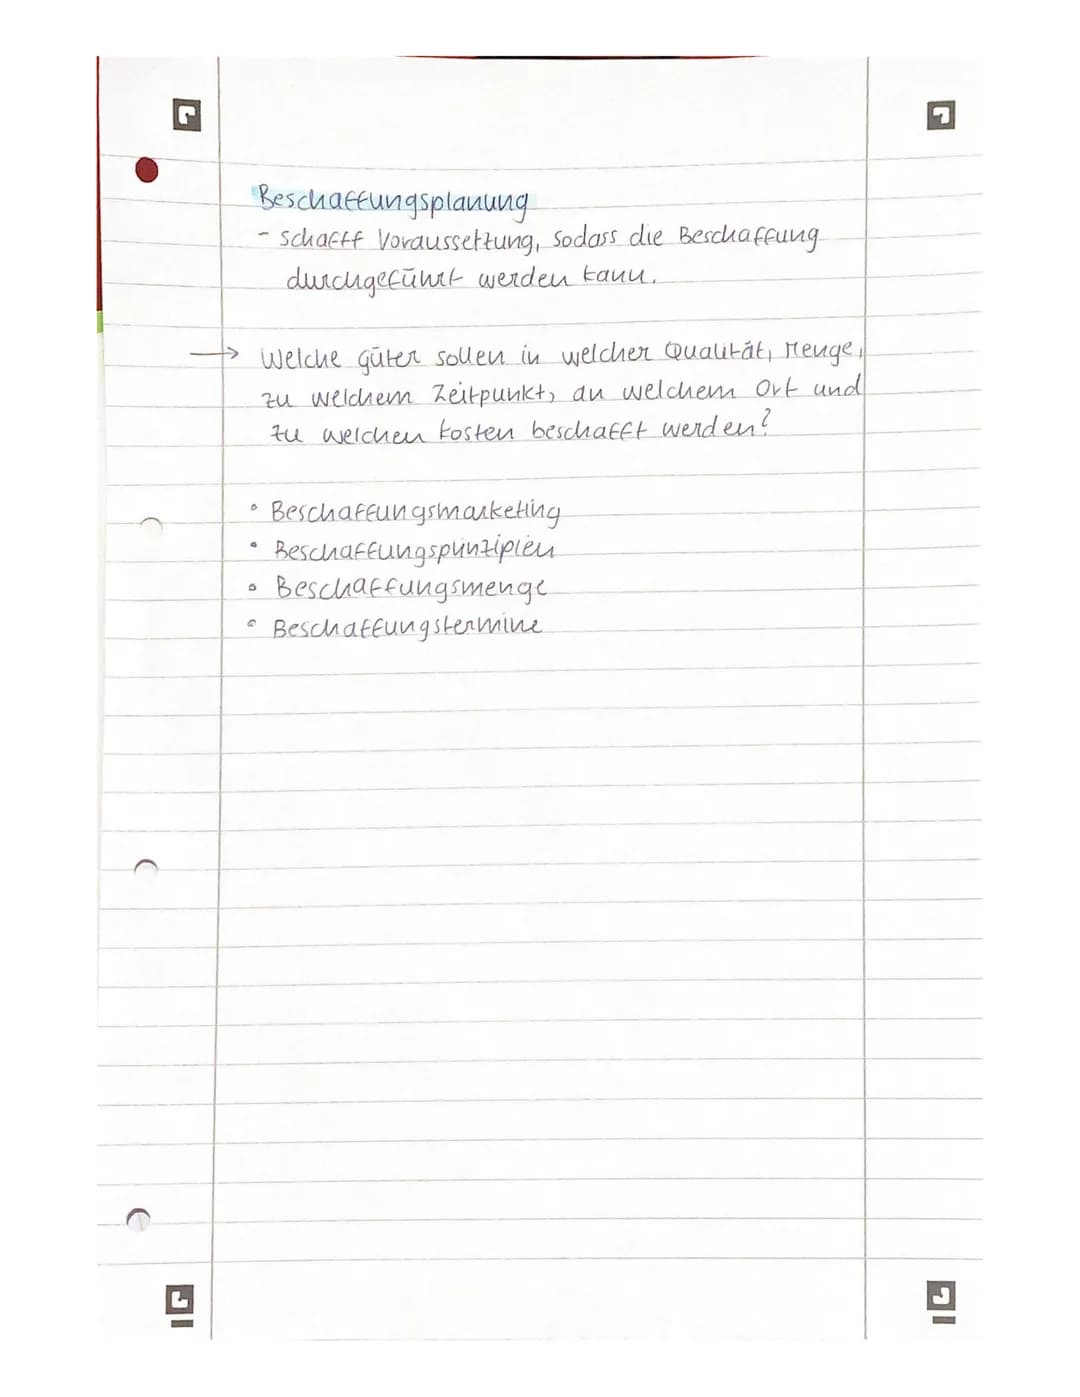 Beschaffungsplanung
- schafft Voraussetzung, sodass die Beschaffung
durchgeführt werden kann.
→ Welche Güter sollen in welcher Qualität, Menge,
zu welchem Zeitpunkt, an welchem Ort und
zu welchen Kosten beschafft werden?
• Beschaffungsmarketing
• Beschaffungsprinzipien
• Beschaffungsmenge
• Beschaffungstermine